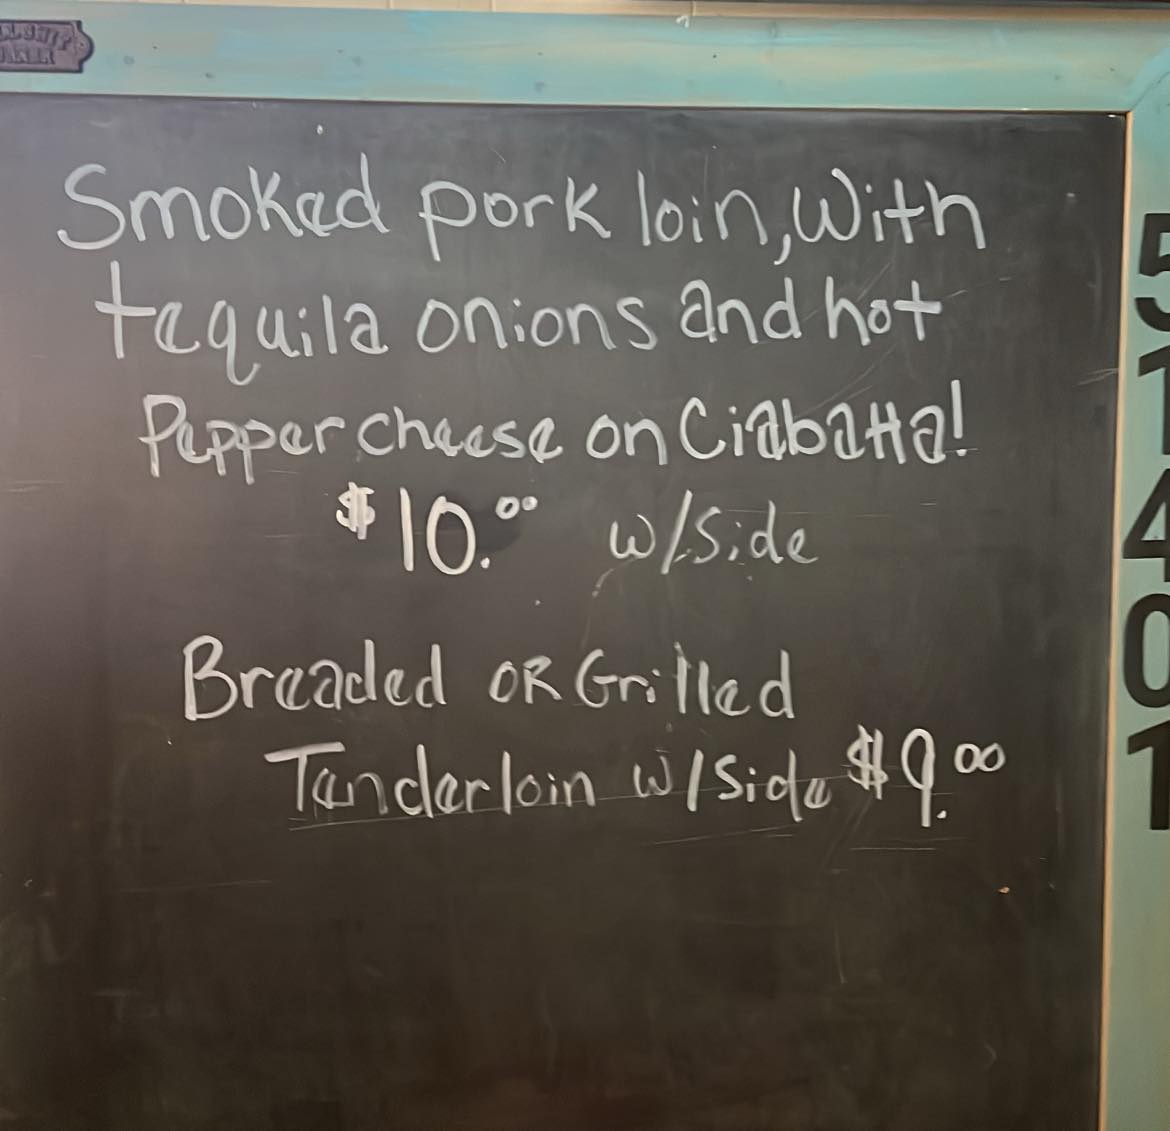 Smoked pork loin, With
tequila onions and hot
Pepper cheese on Ciabatta!
$10.00 w/Side
Breaded OR Grilled
Tenderloin w/Side $9.00
5
1
4
0
1